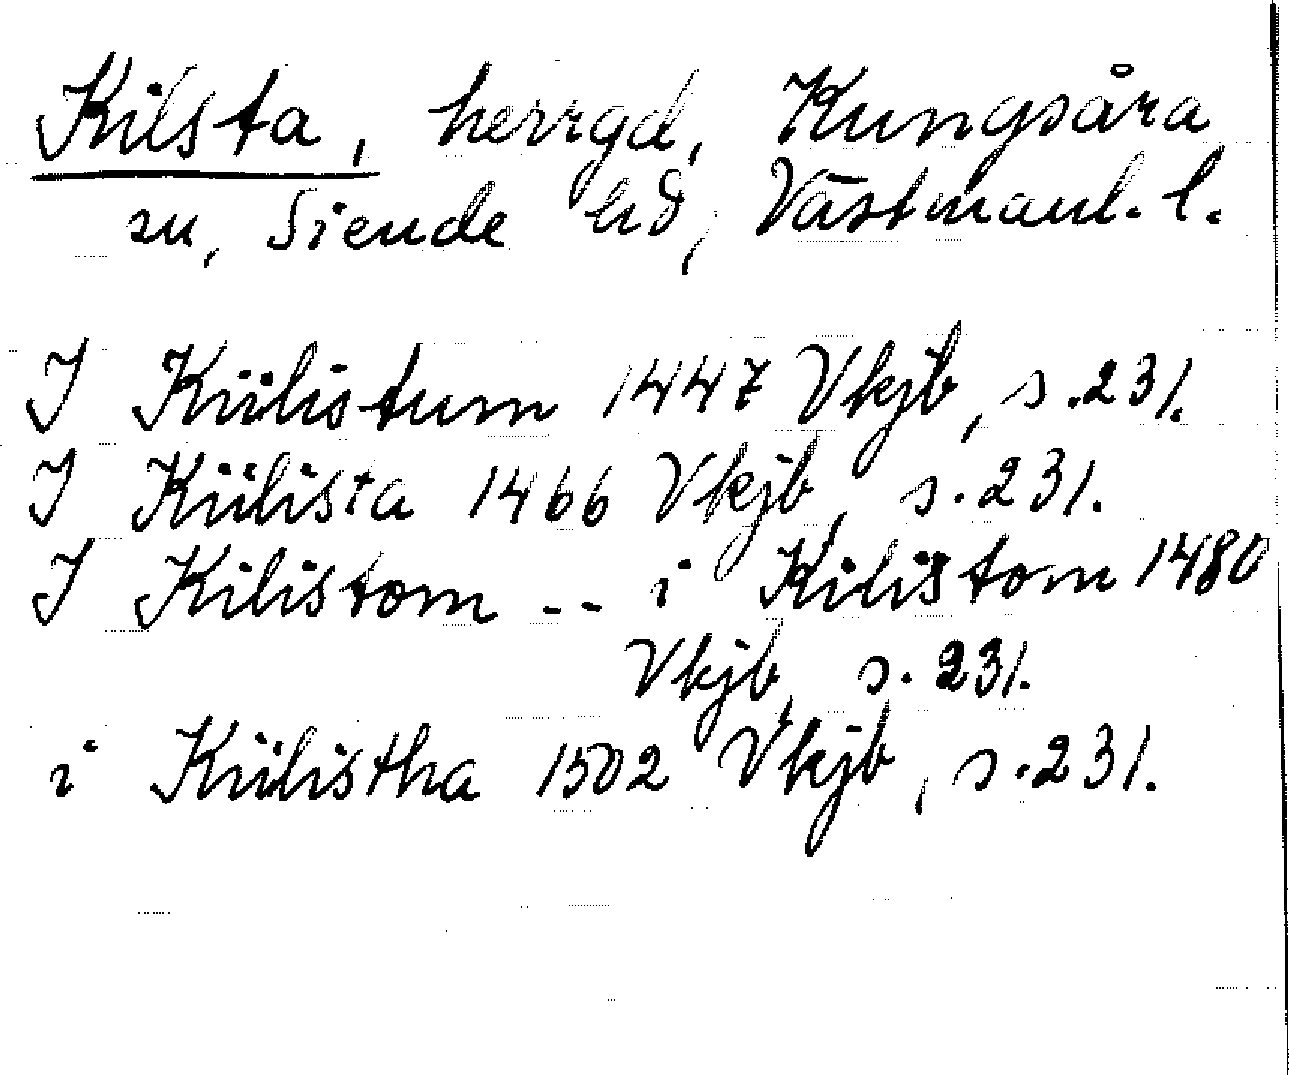 Kilsta, herrgd, Kungsåra
sn, Siende hd, Västmanl. l.
I Kiilistum 1447 Vkjb, s. 231.
I Kiilista 1466 Vkjb, s. 231.
I Kilistom -- i Kilistom 1480
Vkjb, s. 231.
i Kiilistha 1502 Vkjb, s. 231.